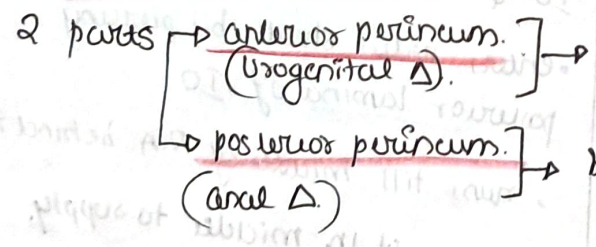 2 parts → anterior perineum.
(Urogenital Δ).
→ posterior perineum.
(anal Δ.)